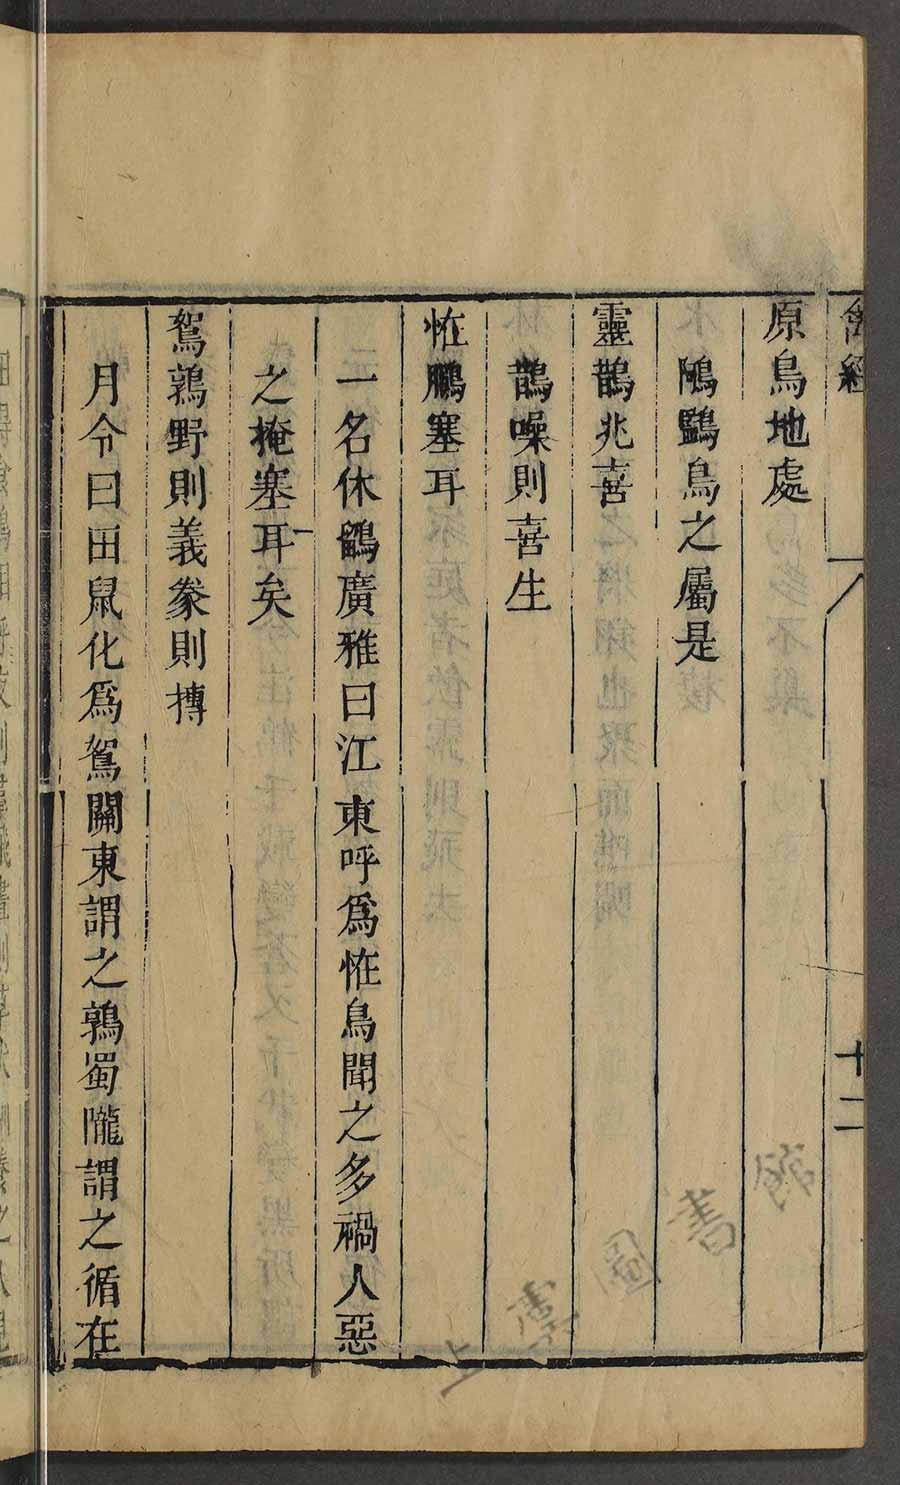 禽經
十二
原鳥地處
鴝鷃鳥之屬是
靈鵲兆喜
鵲噪則喜生
恠鵩塞耳
一名休鶹廣雅曰江東呼爲恠鳥聞之多禍人惡
之掩塞耳矣
鴐鶉野則義豢則摶
月令曰田鼠化爲鴐關東謂之鶉蜀隴謂之循在